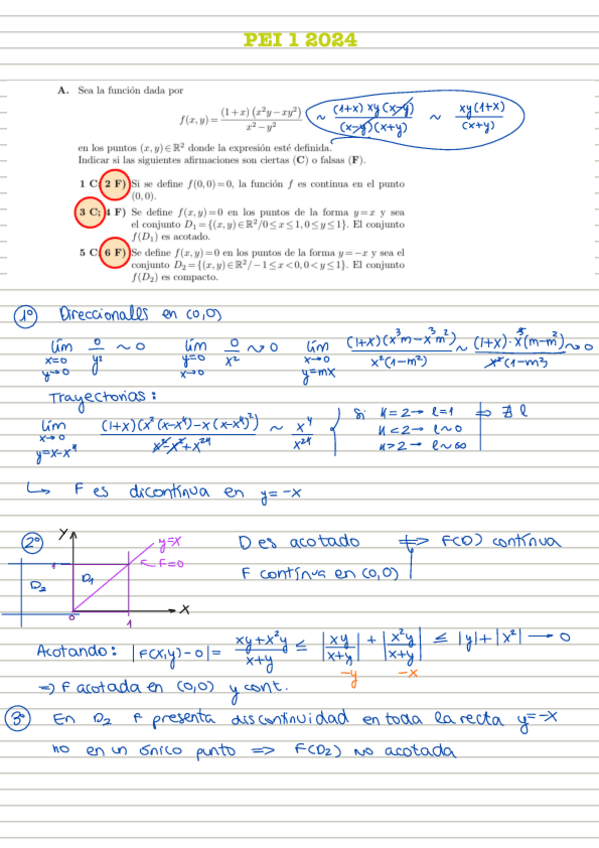 PEI 1 2024
A. Sea la función dada por
f(x,y) = (1+x)(x²y−xy²) / x²−y² ~ (1+x) xy (x-y) / (x-y)(x+y) ~ xy(1+x) / (x+y)
en los puntos (x, y) ∈ ℝ² donde la expresión esté definida.
Indicar si las siguientes afirmaciones son ciertas (C) o falsas (F).
1 C; 2 F) Si se define f(0,0)=0, la función f es continua en el punto
(0,0).
3 C; 4 F) Se define f(x,y)=0 en los puntos de la forma y=x y sea
el conjunto D₁={(x,y)∈ℝ²/0≤x≤1,0≤y≤1}. El conjunto
f(D₁) es acotado.
5 C; 6 F) Se define f(x,y)=0 en los puntos de la forma y=−x y sea el
conjunto D₂={(x,y)∈ℝ²/−1≤x<0,0<y≤1}. El conjunto
f(D₂) es compacto.
1º Direccionales en (0,0)
lim x=0 y→0 0/y² ~ 0 lim y=0 x→0 0/x² ~ 0 lim x→0 y=mx (1+x)(x³m−x³m²) / x²(1−m²) ~ (1+x)·x³(m−m²) / x²(1−m²) ~ 0
Trayectorias:
lim x→0 (1+x)(x²(x−x⁴)−x(x−x⁴)²) / x²−x²+x²⁴ ~ x⁴ / x²⁴ Si K=2 → l=1 ⇒ ∄ l
K<2 → l~0
K>2 → l~∞
↳ F es dicontinua en y=-x
2º Y y=x D es acotado ⇏ F(D) continua
F=0
D₂ D₁ F continua en (0,0)
0 1 X
Acotando: |F(x,y)−0| = xy+x²y / x+y ≤ |xy / x+y| + |x²y / x+y| ≤ |y|+|x²| → 0
-y -x
⇒ F acotada en (0,0) y cont.
3º En D₂ F presenta discontinuidad en toda la recta y=-x
no en un único punto ⇒ F(D₂) no acotada